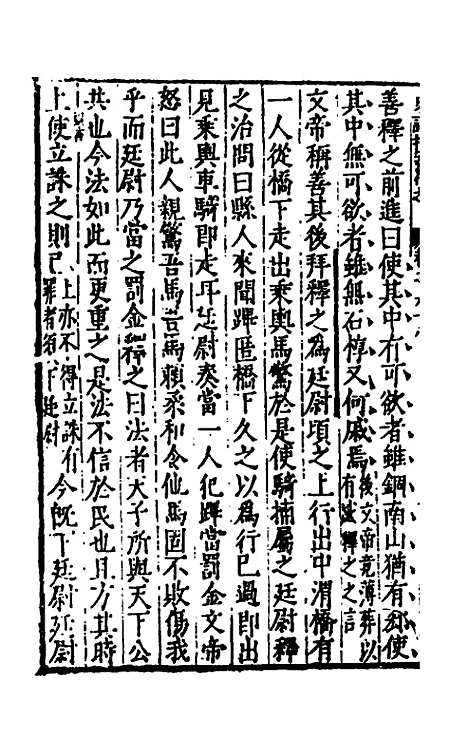 善釋之前進曰使其中有可欲者雖錮南山猶有郄使
其中無可欲者雖無石椁又何戚焉後文帝竟薄葬以有感釋之之言
文帝稱善其後拜釋之為廷尉頃之上行出中渭橋有
一人從橋下走出乘輿馬驚於是使騎捕屬之廷尉釋
之治問曰縣人來聞蹕匿橋下久之以為行已過即出
見乘輿車騎即走耳廷尉奏當一人犯蹕當罰金文帝
怒曰此人親驚吾馬吾馬賴柔和令他馬固不敗傷我
乎而廷尉乃當之罰金釋之曰法者天子所與天下公
共也今法如此而更重之是法不信於民也且方其時
上使立誅之則已上亦不得立誅有罪者須下廷尉今既下廷尉廷尉